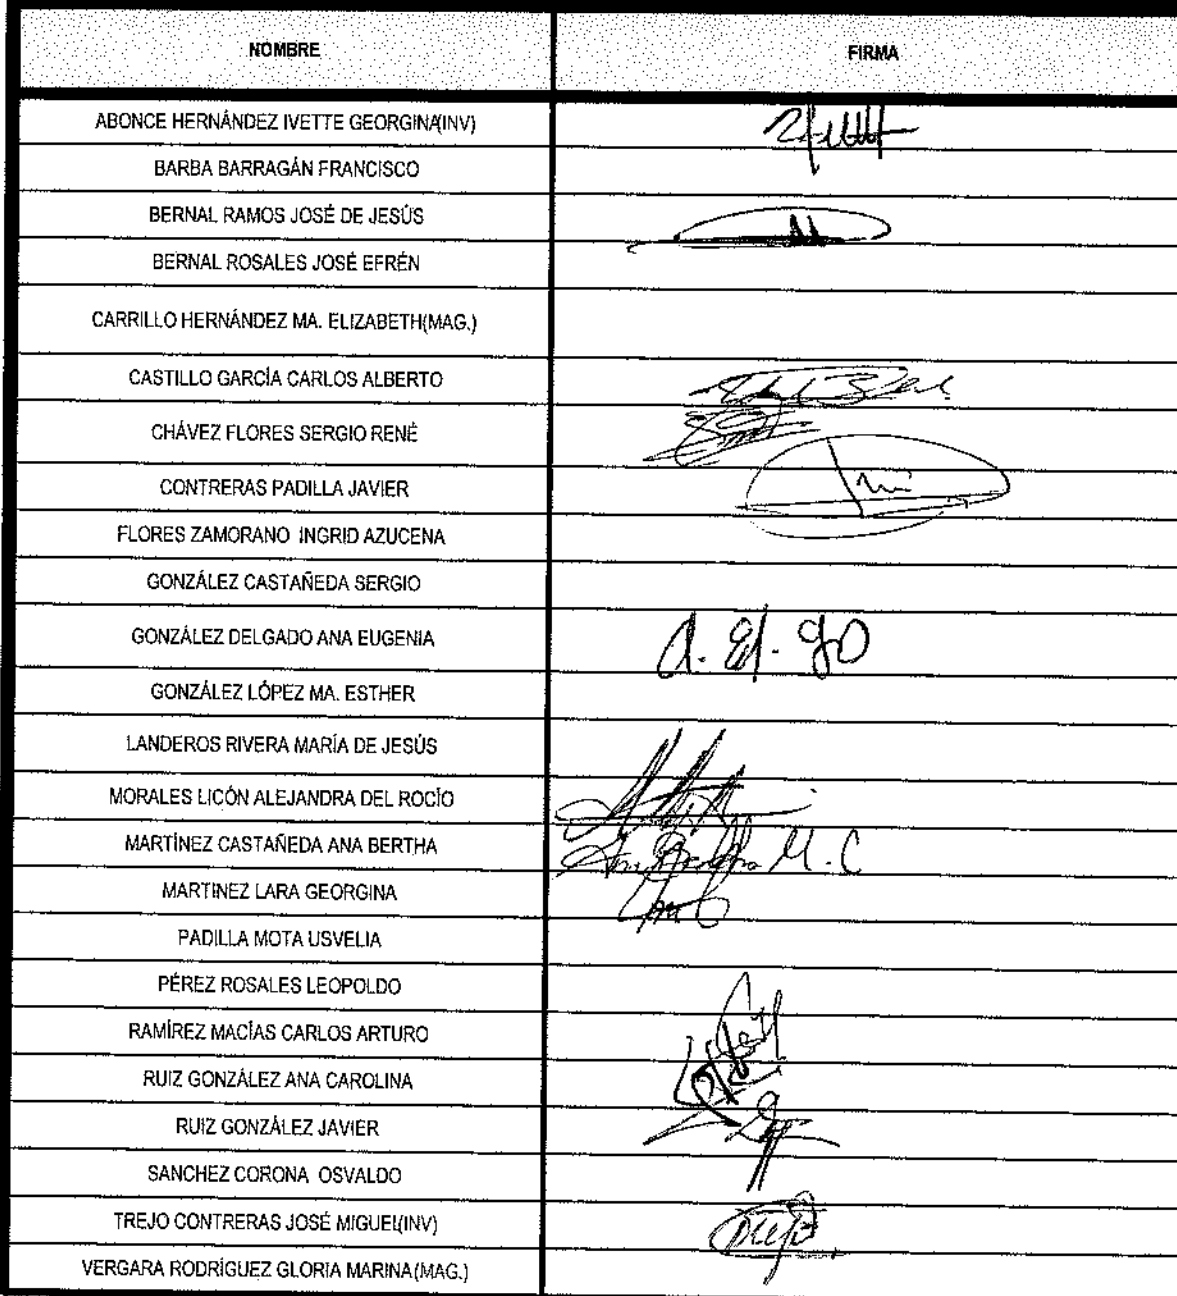 NOMBRE FIRMA
ABONCE HERNÁNDEZ IVETTE GEORGINA(INV)
BARBA BARRAGÁN FRANCISCO
BERNAL RAMOS JOSÉ DE JESÚS
BERNAL ROSALES JOSÉ EFRÉN
CARRILLO HERNÁNDEZ MA. ELIZABETH(MAG.)
CASTILLO GARCÍA CARLOS ALBERTO
CHÁVEZ FLORES SERGIO RENÉ
CONTRERAS PADILLA JAVIER
FLORES ZAMORANO INGRID AZUCENA
GONZÁLEZ CASTAÑEDA SERGIO
GONZÁLEZ DELGADO ANA EUGENIA
GONZÁLEZ LÓPEZ MA. ESTHER
LANDEROS RIVERA MARÍA DE JESÚS
MORALES LICÓN ALEJANDRA DEL ROCÍO
MARTÍNEZ CASTAÑEDA ANA BERTHA Ana Bertha M. C
MARTINEZ LARA GEORGINA
PADILLA MOTA USVELIA
PÉREZ ROSALES LEOPOLDO
RAMÍREZ MACÍAS CARLOS ARTURO
RUIZ GONZÁLEZ ANA CAROLINA
RUIZ GONZÁLEZ JAVIER
SANCHEZ CORONA OSVALDO
TREJO CONTRERAS JOSÉ MIGUEL(INV)
VERGARA RODRÍGUEZ GLORIA MARINA(MAG.)